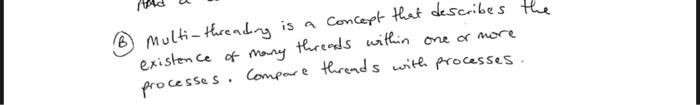 (B) Multi-threading is a concept that describes the
existence of many threads within one or more
processes. Compare threads with processes.